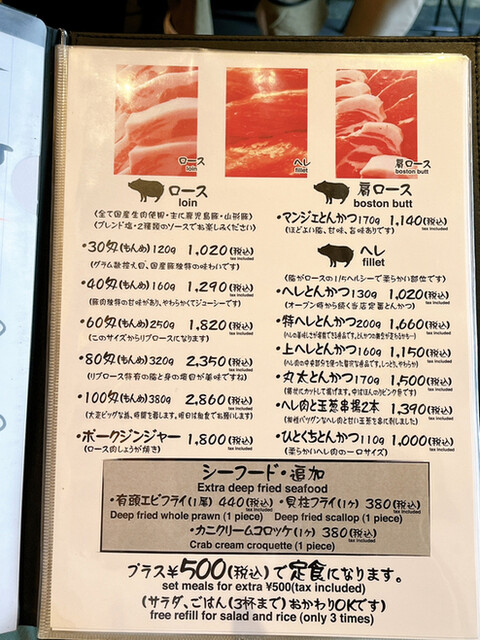 ロース
loin
ヘレ
fillet
肩ロース
boston butt
ロース
loin
(全て国産生肉使用・主に鹿児島豚・山形豚)
(ブレンド塩・2種類のソースでお楽しみください)
・30匁(もんめ)120g 1,020(税込)
tax included
(グラム数控え目、国産豚独特の味わいです)
・40匁(もんめ)160g 1,290(税込)
tax included
(豚肉独特の甘味があり、やわらかくてジューシーです)
・60匁(もんめ)250g 1,820(税込)
tax included
(このサイズからリブロースになります)
・80匁(もんめ)320g 2,350(税込)
tax included
(リブロース特有の脂と身の増目が美味ですね)
・100匁(もんめ)380g 2,860(税込)
tax included
・ポークジンジャー 1,800(税込)
tax included
(ロース肉しょうが焼き)
肩ロース
boston butt
・マンジェとんかつ170g 1,140(税込)
tax included
(ほどよい脂、甘味、旨味ありです)
ヘレ
fillet
(脂がロースの1/5ヘルシーで柔らかい部位です)
・ヘレとんかつ130g 1,020(税込)
tax included
(オープン時から続く当店定番とんかつ)
・特ヘレとんかつ200g 1,660(税込)
tax included
・上ヘレとんかつ160g 1,150(税込)
tax included
(ヘレ肉の中央部分を使った贅沢な商品です。しっとり、やわらか)
・丸太とんかつ170g 1,500(税込)
tax included
・ヘレ肉と玉葱串揚2本 1,390(税込)
tax included
・ひとくちとんかつ110g 1,000(税込)
tax included
(柔らかいヘレ肉の一口サイズ)
シーフード・追加
Extra deep fried seafood
・有頭エビフライ(1尾) 440(税込) ・貝柱フライ(1ヶ) 380(税込)
tax included tax included
Deep fried whole prawn (1 piece) Deep fried scallop (1 piece)
・カニクリームコロッケ(1ヶ) 380(税込)
tax included
Crab cream croquette (1 piece)
プラス¥500(税込)で定食になります。
set meals for extra ¥500(tax included)
(サラダ、ごはん(3杯まで)おかわりOKです)
free refill for salad and rice (only 3 times)